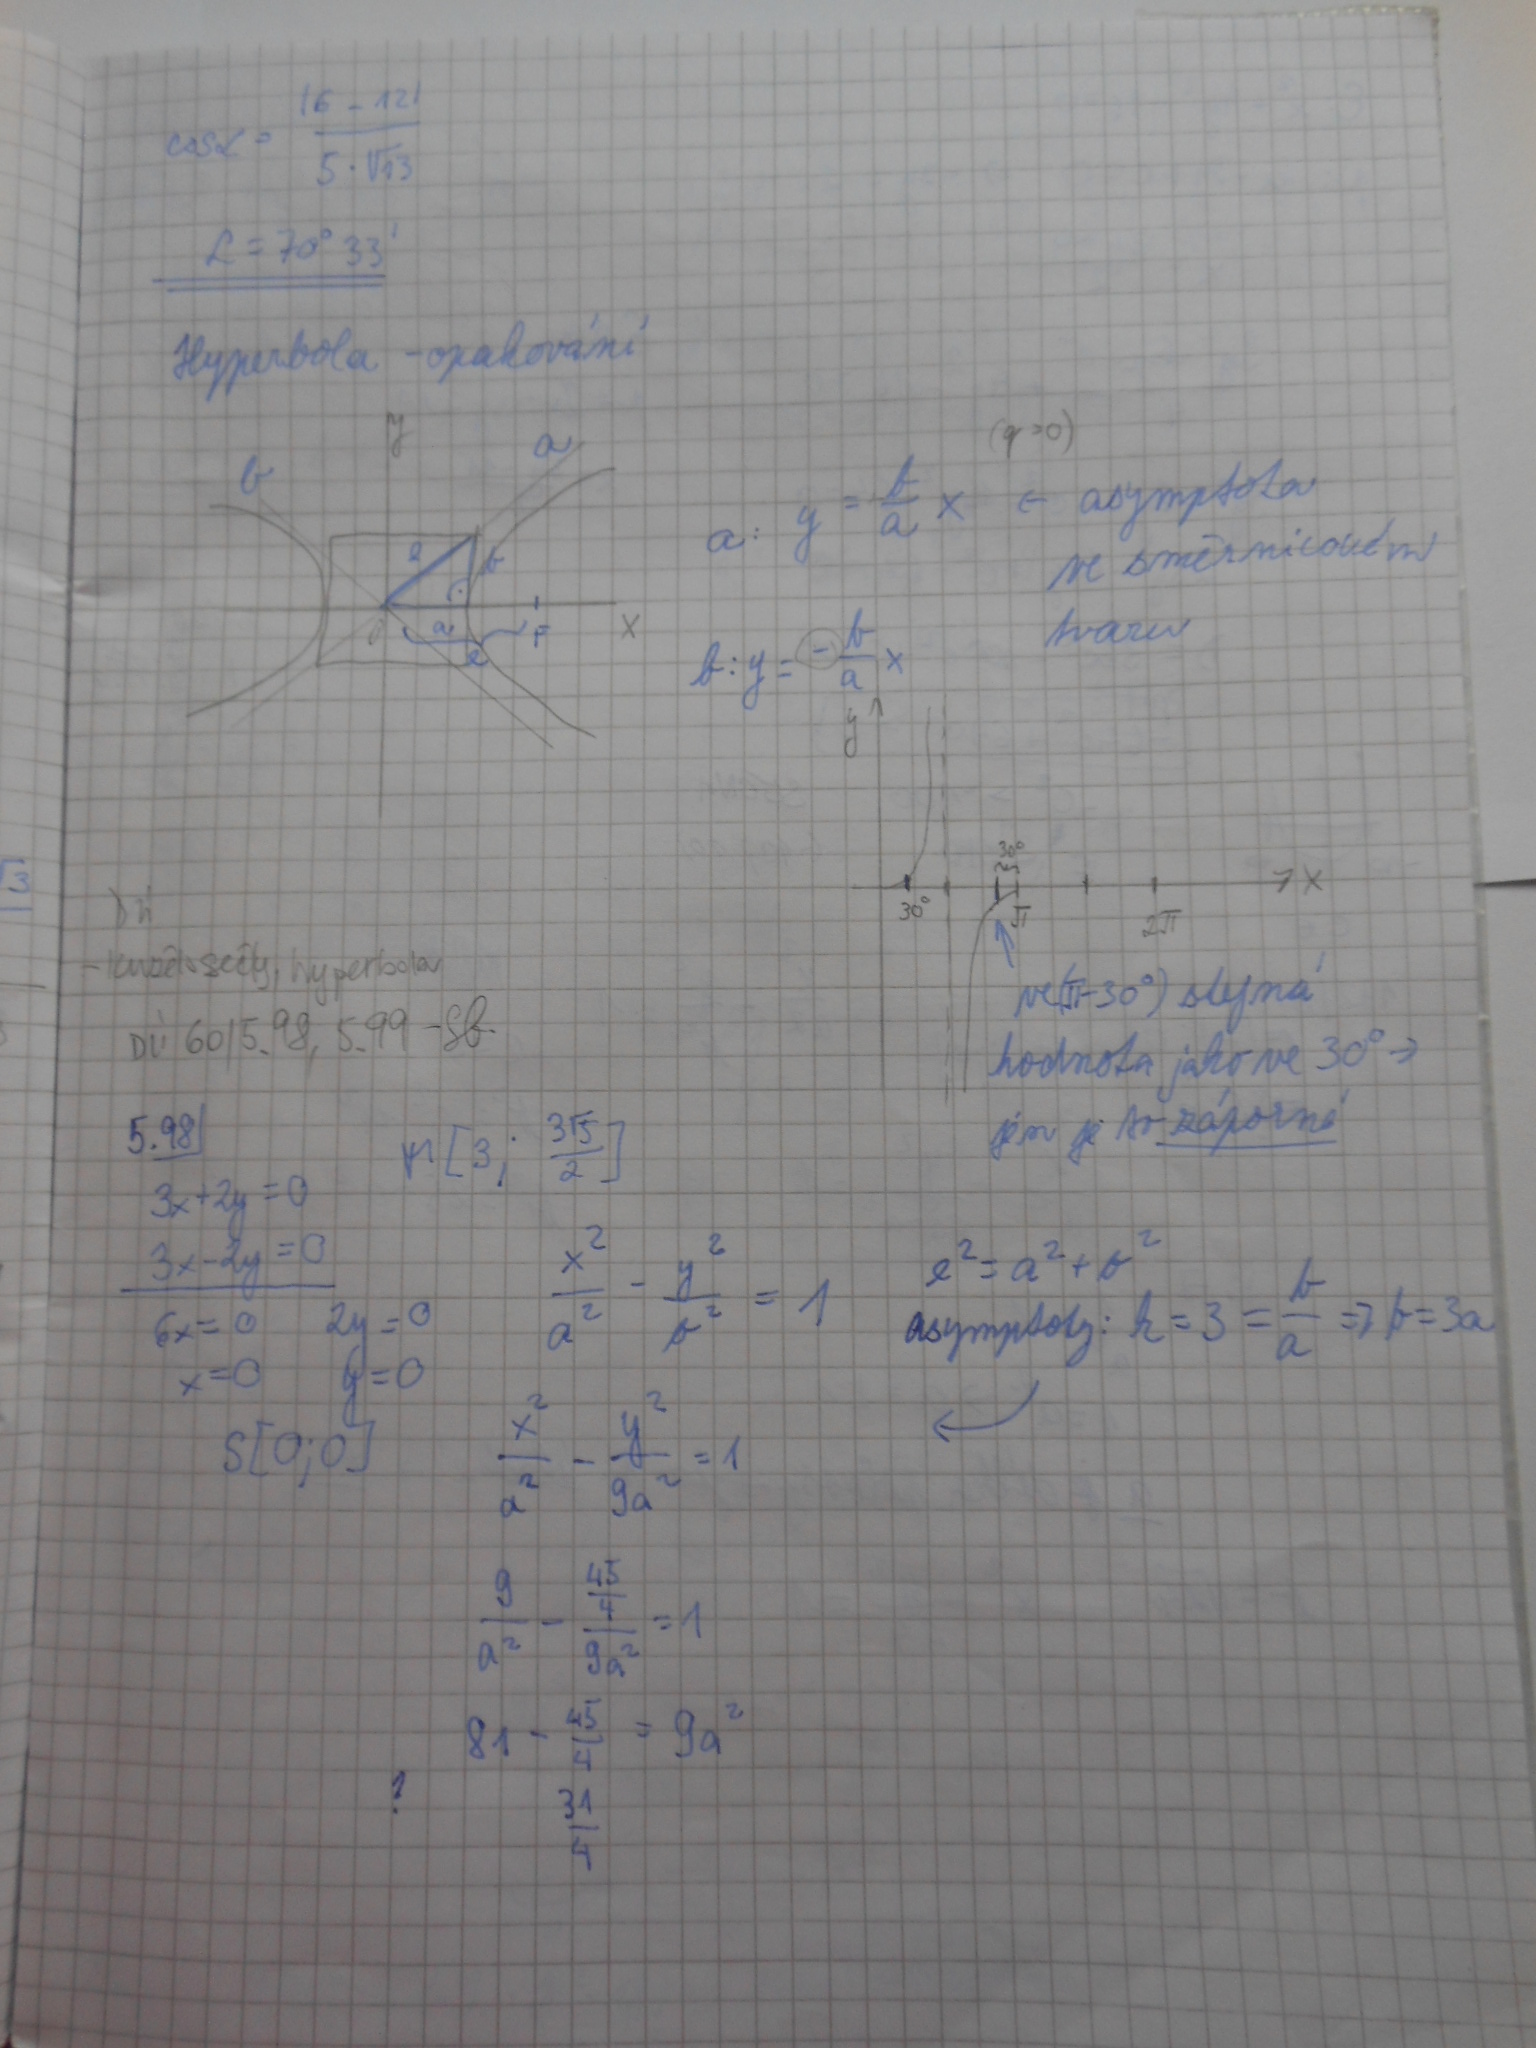 cos α = |6 - 12| / 5 · √13
α = 70° 33'
Hyperbola - opakování
y
b
a
e
b
a
e
F
x
(q = 0)
a: y = b/a x ← asymptota
ve směrnicovém
tvaru
b: y = - b/a x
y
30°
30°
π
2π
x
ve (π-30°) stejná
hodnota jako ve 30° →
jen je to záporné
√3
DÚ
- kuželosečky, hyperbola
DÚ 60/5.98, 5.99 - Sb.
5.98
M [3; 3√5/2]
3x + 2y = 0
3x - 2y = 0
6x = 0 2y = 0
x = 0 y = 0
S[0;0]
x²/a² - y²/b² = 1
e² = a² + b²
asymptoty: k = 3 = b/a => b = 3a
x²/a² - y²/9a² = 1
9/a² - 45/4/9a² = 1
81 - 45/4 = 9a²
?
31/4